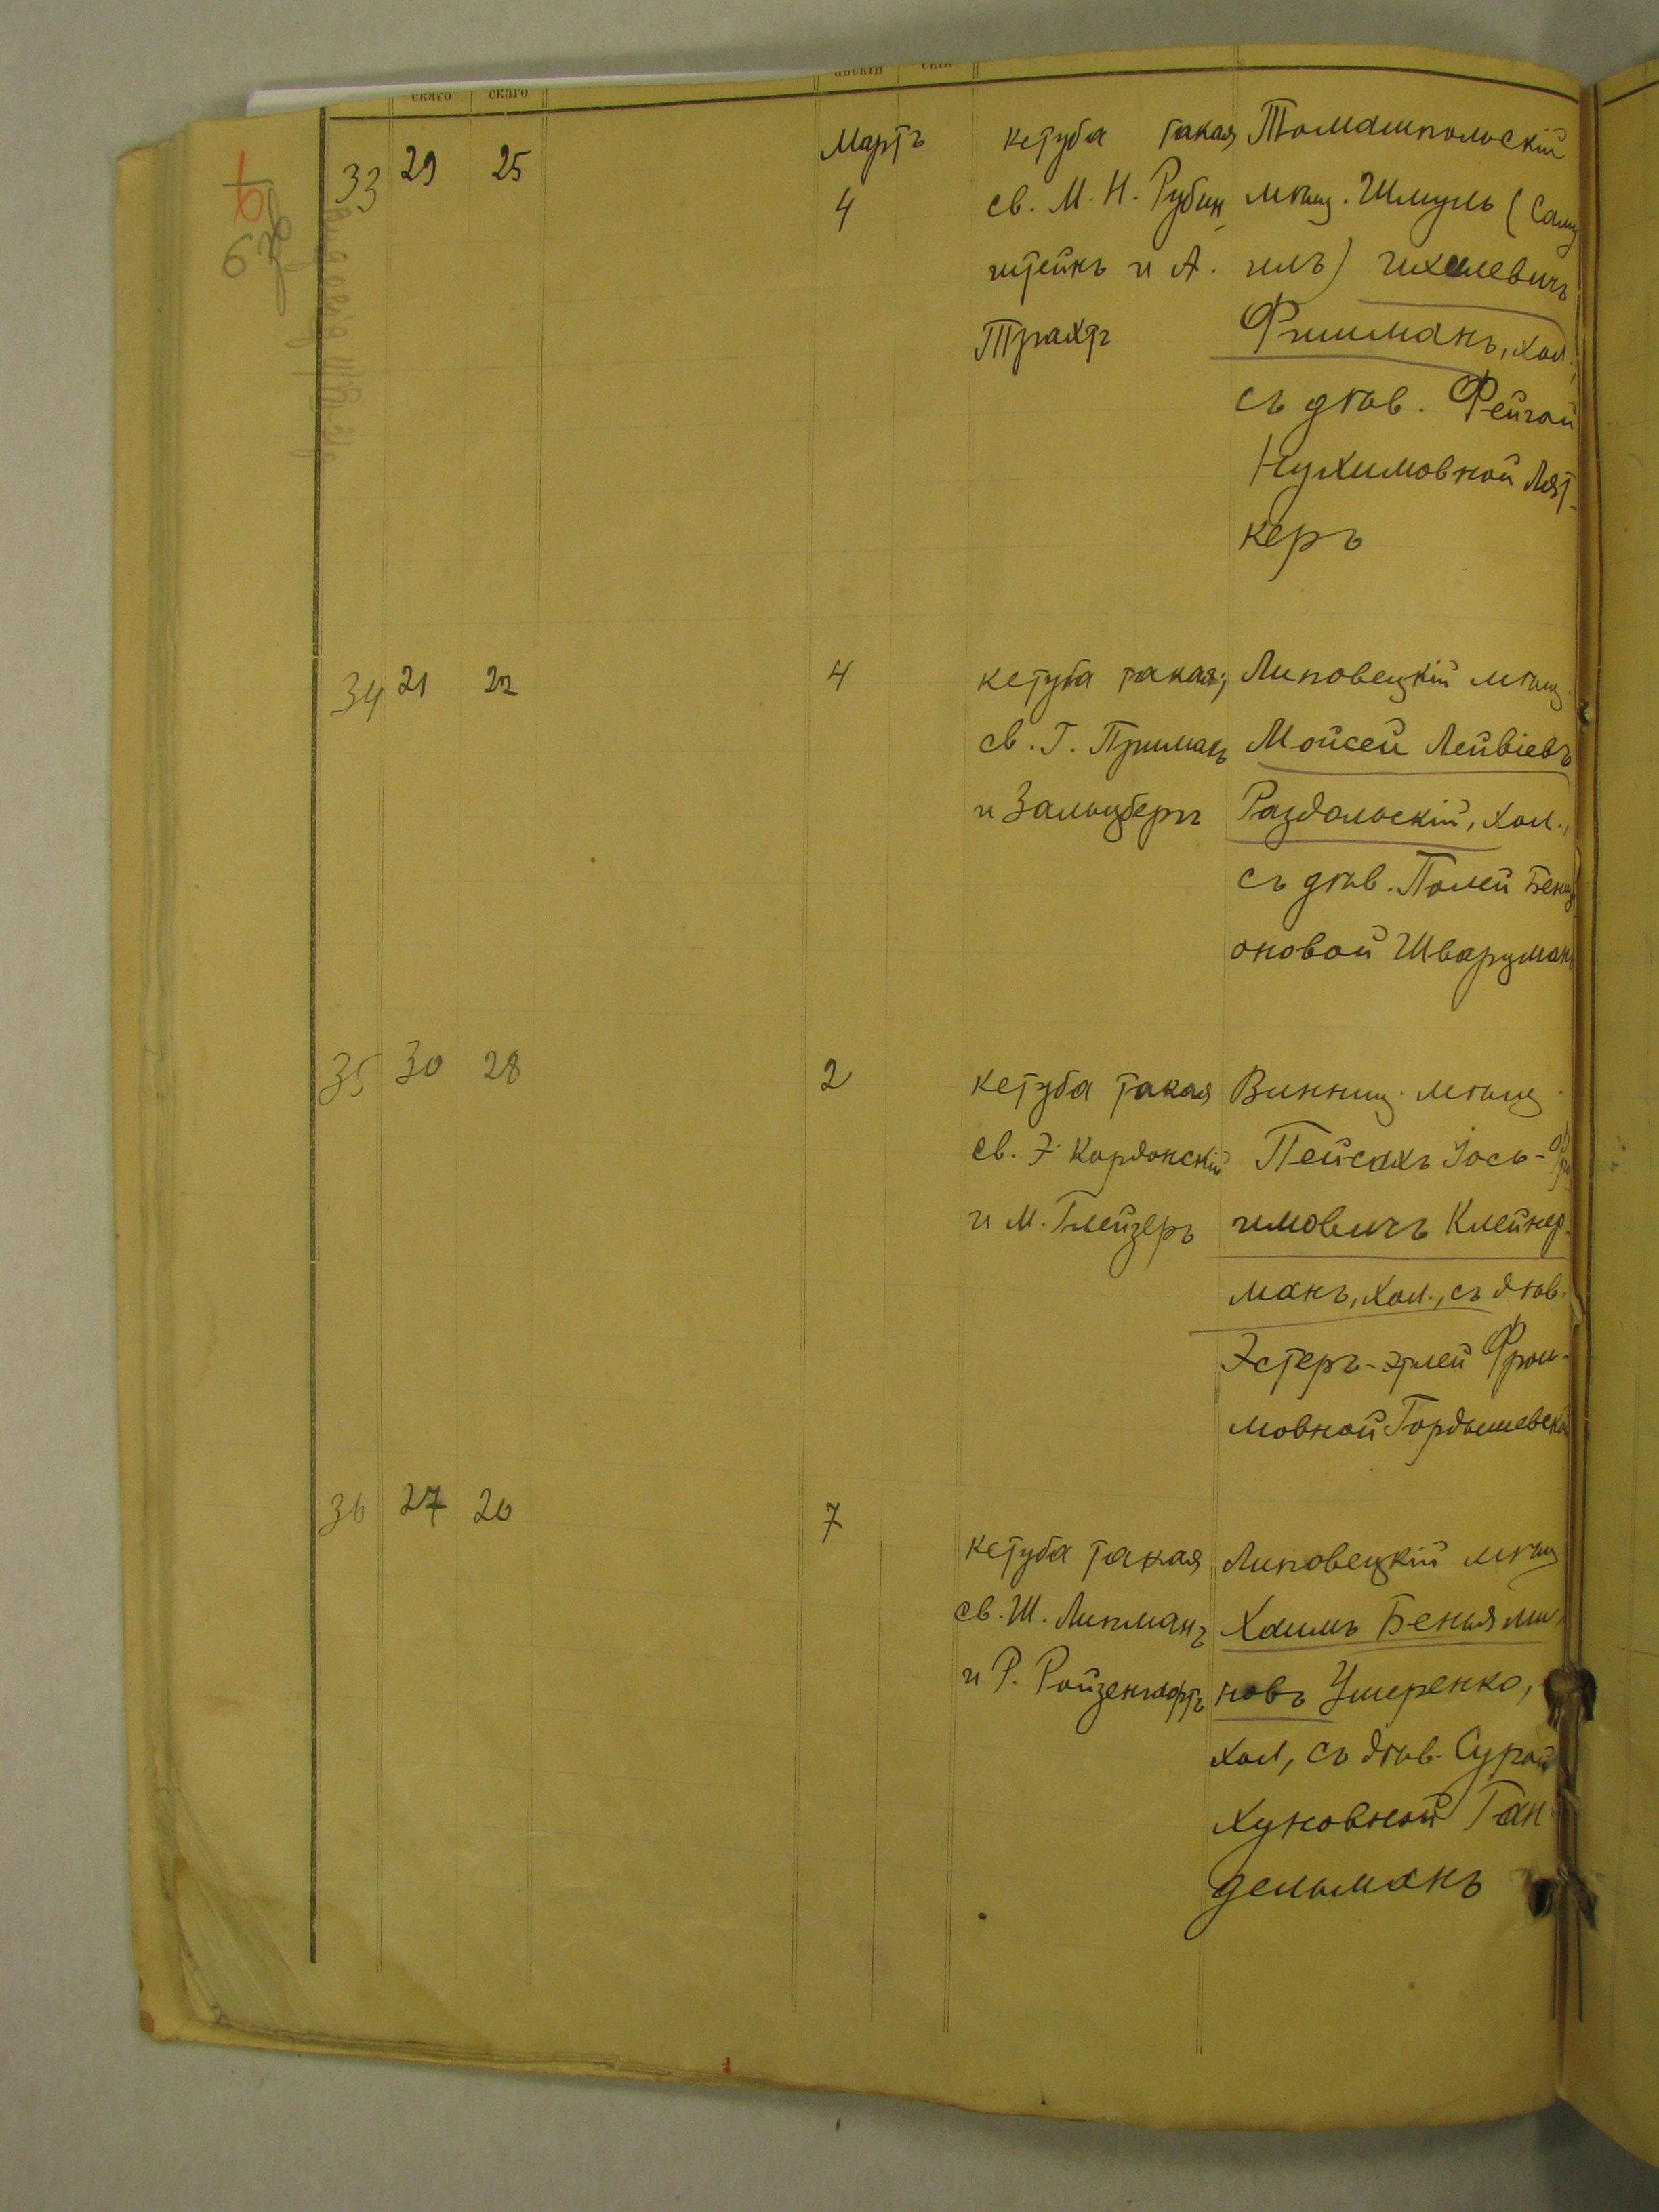 скаго скаго
33 29 25 Мартъ
4
кетуба такая
св. М. Н. Рубин
штейнъ и А.
Трахт
Томашпольскій
мѣщ. Шмуль (Саму
илъ) Ихелевичъ
Фишманъ, хол.,
съ дѣв. Фейгой
Нухимовной Лят-
керъ
34 21 22 4
кетуба такая;
св. Г. Приманъ
и Зальцберг
Липовецкій мѣщ.
Мойсей Лейвіевъ
Раздольскій, хол.,
съ дѣв. Полей Бенц
оновой Шварцманъ
35 30 28 2
кетуба такая
св. Э. Кордонскій
и М. Глейзеръ
Винниц. мѣщ.
Пейсахъ Іось-Фро
имовичъ Клейнер-
манъ, хол., съ дѣв.
Эстеръ-Этлей Фрои-
мовной Гордышевской
36 27 20 7
кетуба такая
св. Ш. Липманъ
и Р. Ройзенгафтъ
Липовецкій мѣщ
Хаимъ Беньями
новъ Ушеренко,
хол, съ дѣв. Сурой
Хуновной Ган
дельманъ